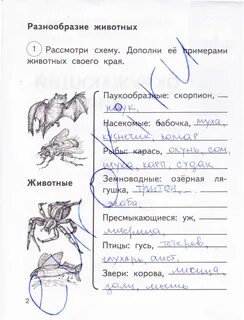 Разнообразие животных
1 Рассмотри схему. Дополни её примерами
животных своего края.
Паукообразные: скорпион,
паук.
Насекомые: бабочка, муха,
кузнечик, комар
Рыбы: карась, окунь, сом,
щука, карп, судак
Животные
Земноводные: озёрная ля-
гушка, тритон,
жаба.
Пресмыкающиеся: уж,
ящерица
Птицы: гусь, тетерев,
глухарь, аист,
Звери: корова, лисица,
заяц, мышь
2